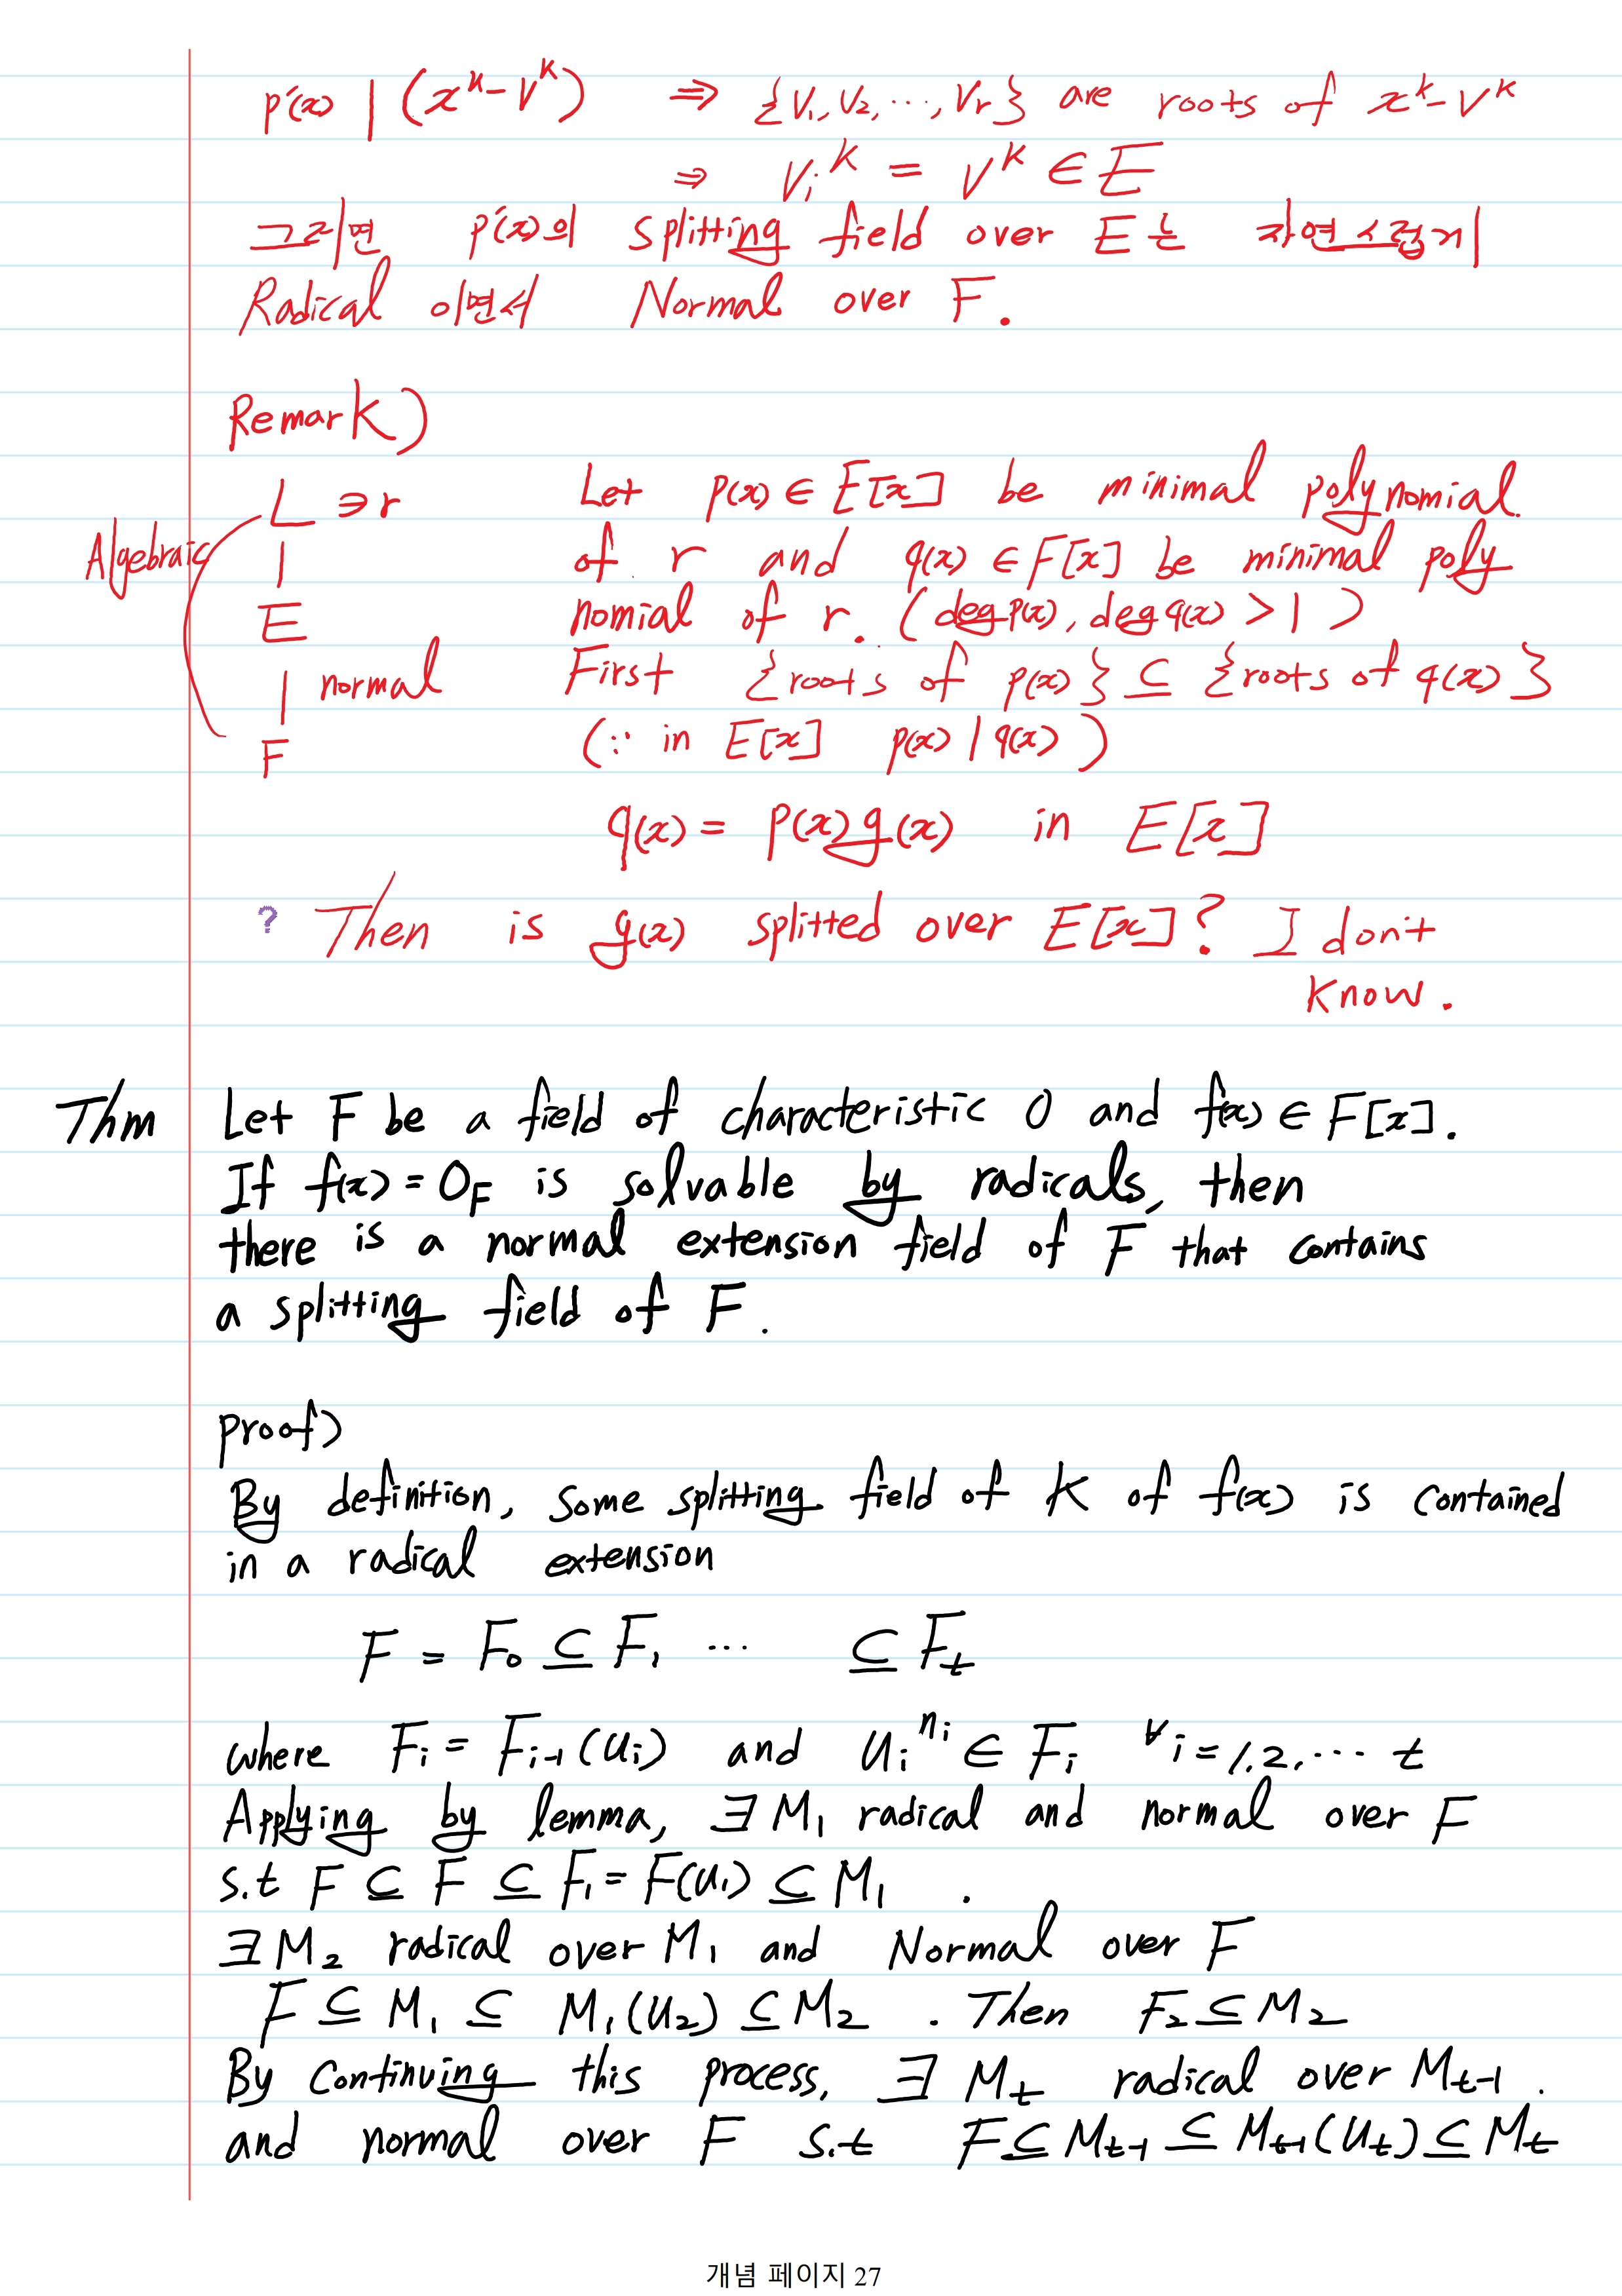 p(x) | (x^k - v^k) ⇒ {v₁, v₂, ⋯, vᵣ} are roots of x^k - v^k
⇒ vᵢ^k = v^k ∈ E
그러면 p(x)의 splitting field over E는 자연스럽게
Radical 이면서 Normal over F.
Remark)
L ∋ r Let p(x) ∈ E[x] be minimal polynomial
Algebraic | of r and q(x) ∈ F[x] be minimal poly
E nomial of r. (deg p(x), deg q(x) > 1)
| normal First {roots of p(x)} ⊆ {roots of q(x)}
F (∵ in E[x] p(x) | q(x))
q(x) = p(x)g(x) in E[x]
? Then is g(x) splitted over E[x]? I dont
know.
Thm Let F be a field of characteristic 0 and f(x) ∈ F[x].
If f(x) = 0_F is solvable by radicals, then
there is a normal extension field of F that contains
a splitting field of F.
proof)
By definition, some splitting field of K of f(x) is contained
in a radical extension
F = F₀ ⊆ F₁ ⋯ ⊆ F_t
where Fᵢ = Fᵢ₋₁(uᵢ) and uᵢ^nᵢ ∈ Fᵢ ∀i = 1, 2, ⋯ t
Applying by lemma, ∃ M₁ radical and normal over F
s.t F ⊆ F ⊆ F₁ = F(u₁) ⊆ M₁ .
∃ M₂ radical over M₁ and Normal over F
F ⊆ M₁ ⊆ M₁(u₂) ⊆ M₂ . Then F₂ ⊆ M₂
By continuing this process, ∃ M_t radical over M_t-1 .
and normal over F s.t F ⊆ M_t-1 ⊆ M_t-1(u_t) ⊆ M_t
개념 페이지 27